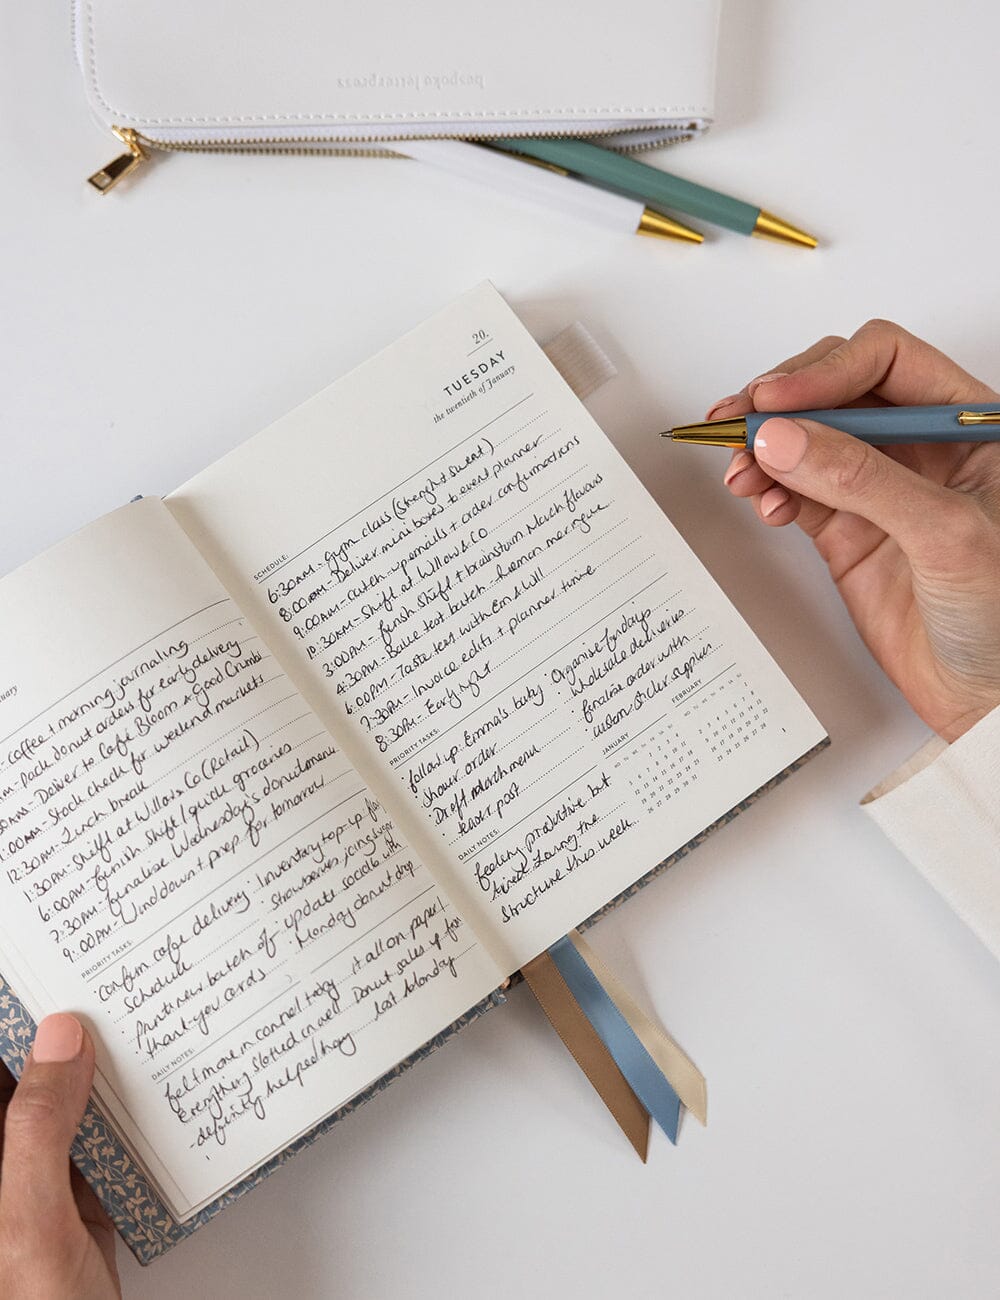 bespoke letterpress
uary
- coffee + morning journaling
AM- Pack donut orders for early delivery
00AM- Deliver to Café Bloom + Good Crumb
1:00AM- Stock check for weekend markets
12:30AM- Lunch break
1:30AM- Shift at Willow & Co (Retail)
6:00AM- Finish shift / quick groceries
7:30AM- Finalise Wednesday's donut menu
9:00AM- Wind down + prep for tomorrow
PRIORITY TASKS:
· Confirm cafe delivery
schedule
· Print new batch of
thank-you cards
· Inventory top-up
strawberries, icing sugar
· update socials with
Monday donut drop
DAILY NOTES:
felt more in control today
Everything slotted in well
- definitely helped having
it all on paper!
Donut sales up from
last Monday
20.
TUESDAY
the twentieth of January
SCHEDULE:
6:30AM- Gym class (strenght sweat)
8:00AM- Deliver mini boxes to event planner
9:00AM- catch-up emails + order confirmations
10:30AM- Shift at Willow & CO
3:00AM- finish shift + brainstorm March flavours
4:30AM- Bake test batch - lemon meringue
6:00PM- Taste test with Em & Will
7:30AM- Invoice edits + planner time
8:30AM- Early night
PRIORITY TASKS:
· follow up Emma's baby
shower order
· Draft March menu
· tender post
· Organise fridays
wholesale deliveries
· finalise order with
custom sticker supplier
DAILY NOTES:
feeling productive but
tired. Loving the
structure this week.
JANUARY
FEBRUARY